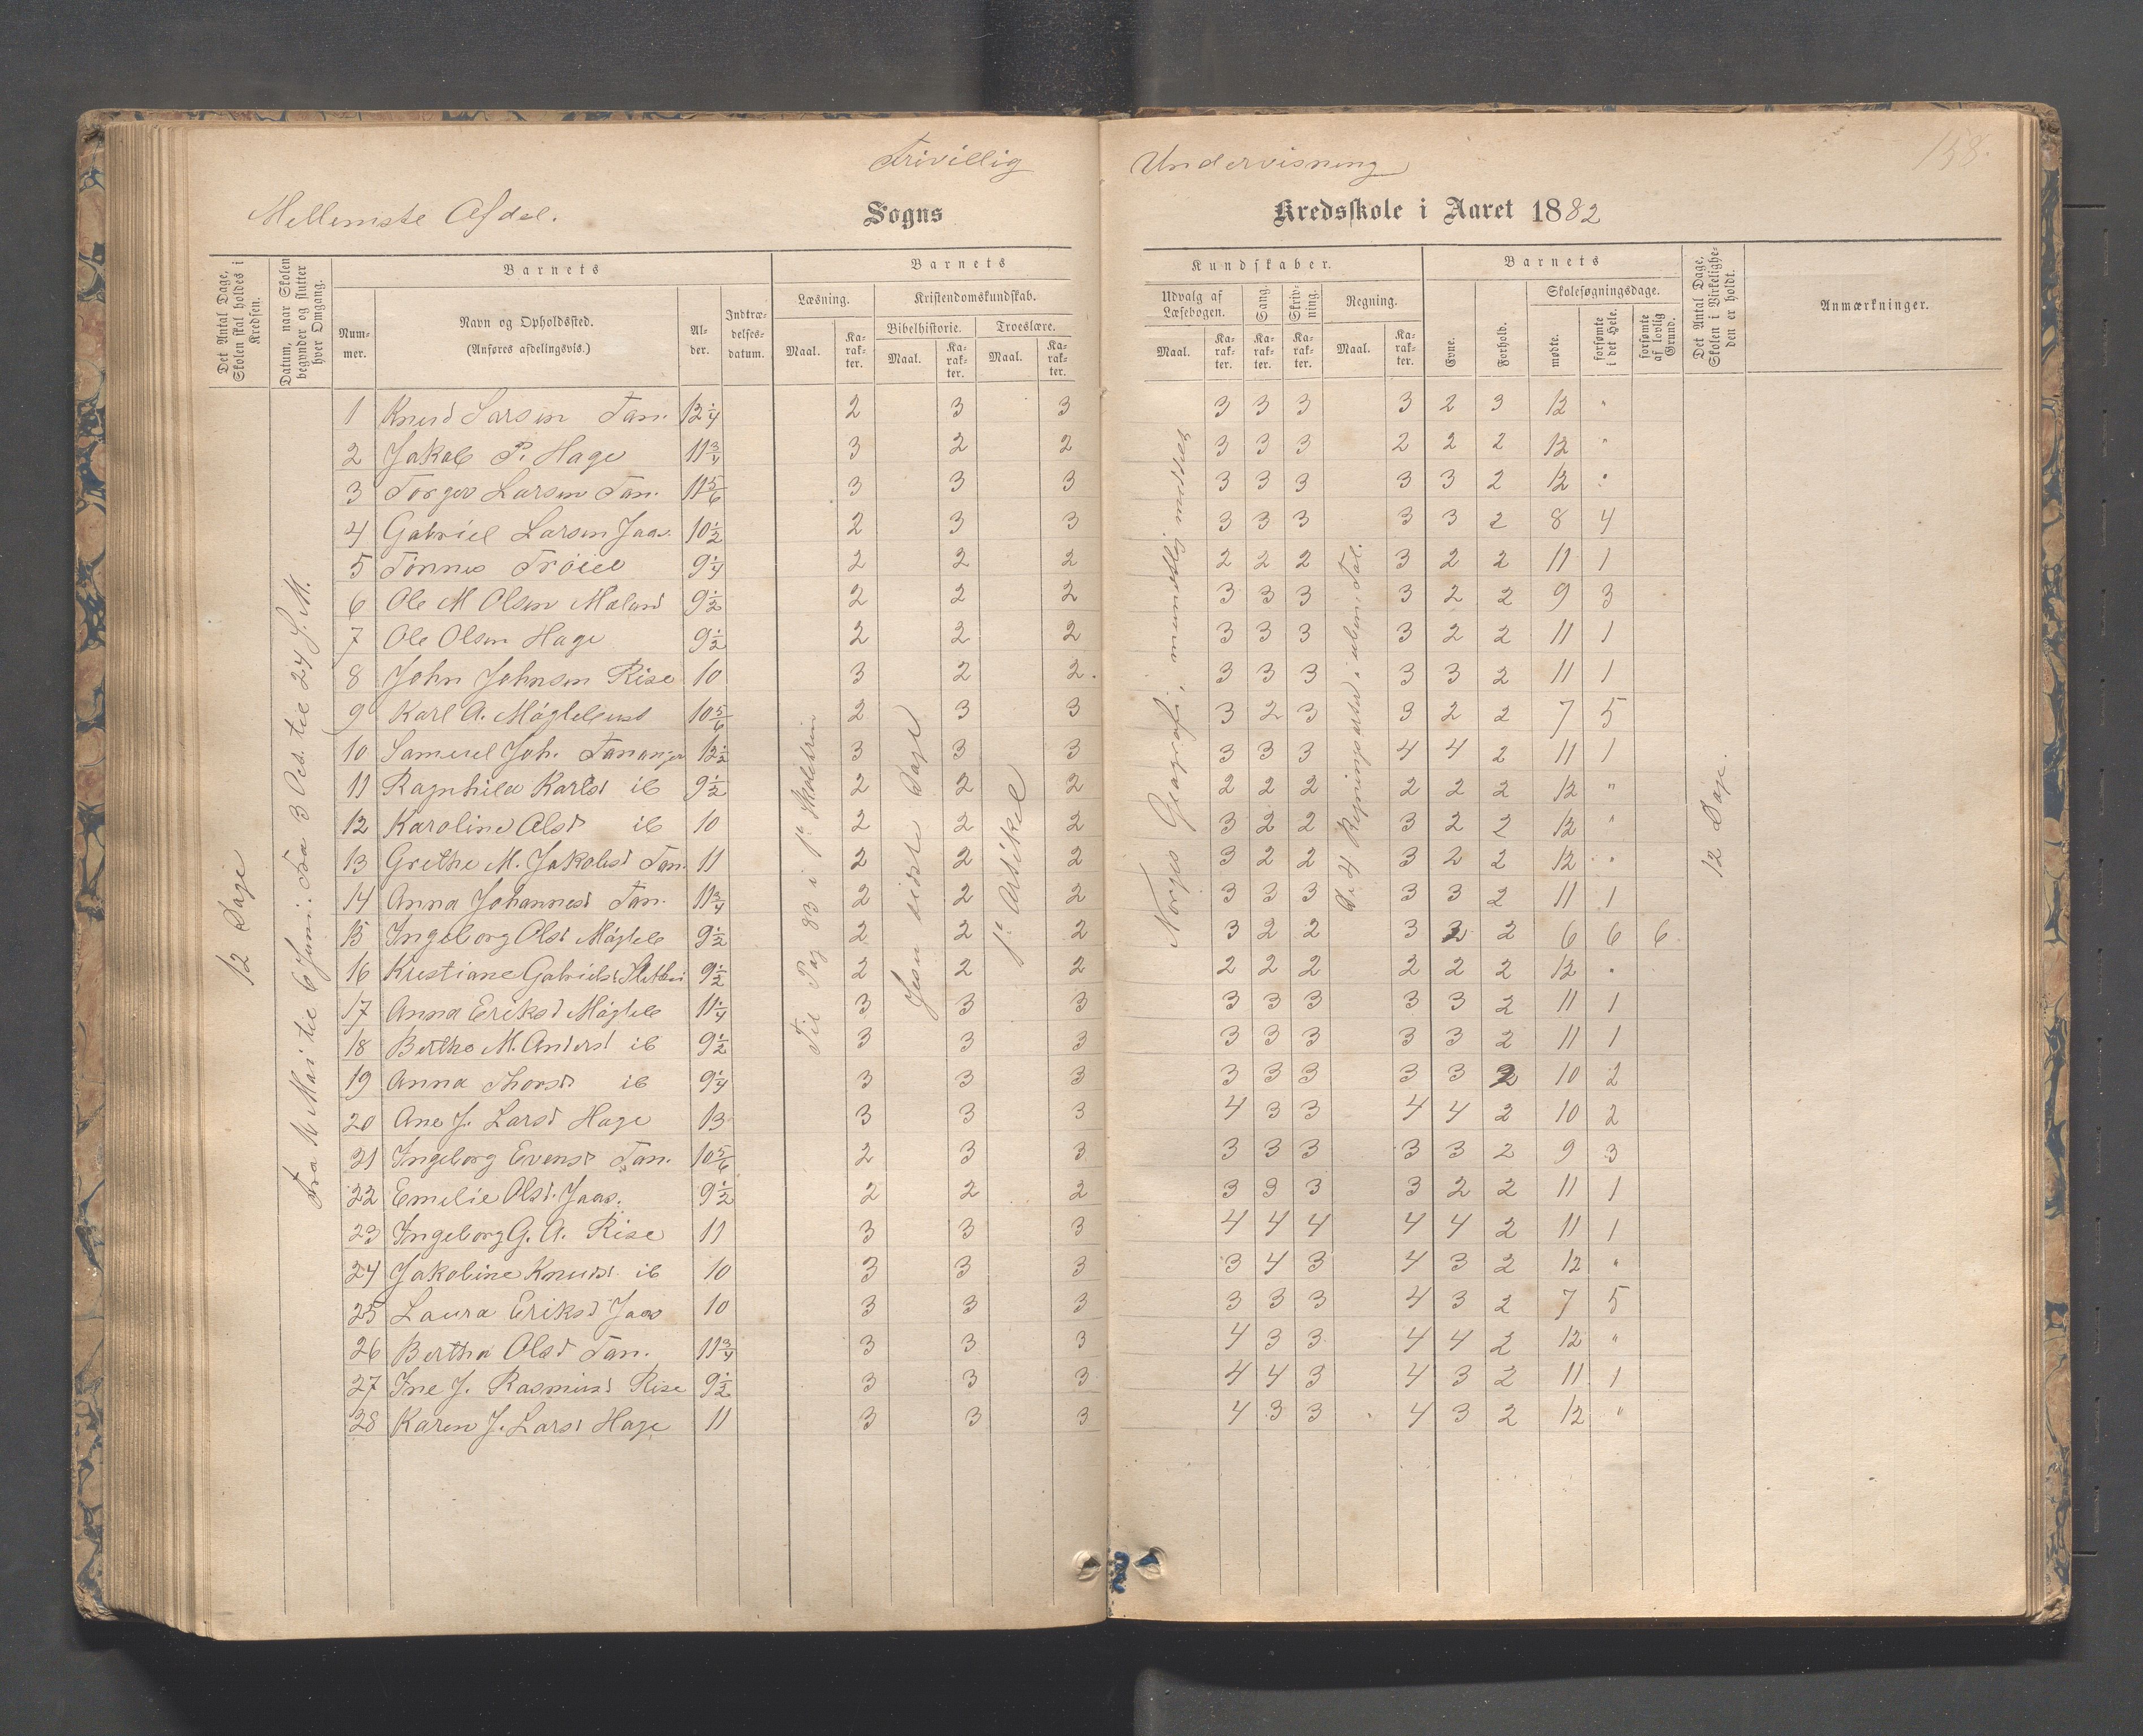 Frivillig Undervisning
158.
Mellemste Afdel. Sogns Kredsskole i Aaret 1882
Det Antal Dage, Skolen skal holdes i Kredsen.
Datum, naar Skolen begynder og slutter hver Omgang.
Barnets
Nummer.
Navn og Opholdssted.
(Anføres afdelingsvis.)
Alder.
Indtrædelsesdatum.
Barnets
Læsning.
Maal.
Karakter.
Kristendomskundskab.
Bibelhistorie.
Maal.
Karakter.
Troeslære.
Maal.
Karakter.
Kundskaber.
Udvalg af Læsebogen.
Maal.
Karakter.
Sang.
Karakter.
Skrivning.
Karakter.
Regning.
Maal.
Karakter.
Barnets
Evne.
Forhold.
Skolesøgningsdage.
mødte.
forsømte i det Hele.
forsømte af lovlig Grund.
Det Antal Dage, Skolen i Virkeligheden er holdt.
Anmærkninger.
12 Dage
Fra 16 Mai til 6 Juni. Fra 3 Oct. til 24 S. M.
Til Pag 83 i
Jesu sidste Dage
1ste Artikel
Norges Geografi, mundtlig meddelt
De 4 Regningsarter i uben. Tal.
12 Dage.
1 Knud Larsen Tan. 12 1/4 2 3 3 3 3 3 3 2 3 12 "
2 Jakob P. Hage 11 3/4 3 2 2 3 3 3 2 2 2 12 "
3 Torger Larsen Tan. 11 5/6 3 3 3 3 3 3 3 3 2 12 "
4 Gabriel Larsen Jaas. 10 1/2 2 3 3 3 3 3 3 3 2 8 4
5 Tønnes Trøiel 9 1/4 2 2 2 2 2 2 3 2 2 11 1
6 Ole M Olsen Mæland 9 1/2 2 2 2 3 3 3 3 2 2 9 3
7 Ole Olsen Hage 9 1/2 2 2 2 3 3 3 3 2 2 11 1
8 John Johnsen Rise 10 3 2 2. 3 3 3 3 3 2 11 1
9 Karl A. Mågleleust 10 5/6 2 3 3 3 2 3 3 2 2 7 5
10 Samuel Joh. Tananger 12 1/2 3 3 3 3 3 3 4 4 2 11 1
11 Ragnhild Karlsd ib 9 1/2 2 2 2 2 2 2 2 2 2 12 "
12 Karoline Olsd ib 10 2 2 2 3 2 2 3 2 2 12 "
13 Grethe M. Jakobsd Tan. 11 2 2 2 3 2 2 3 2 2 12 "
14 Anna Johannesd Tan. 11 3/4 2 2 2 3 3 3 3 3 2 11 1
15 Ingeborg Olsd Mågleb 9 1/2 2 2 2 3 2 2 3 2 2 6 6 6
16 Kristiane Gabrielsd 9 1/2 2 2 2 2 2 2 2 2 2 12 "
17 Anna Eriksd Mågleb 11 1/4 3 3 3 3 3 3 3 3 2 11 1
18 Bertha M. Andersd ib 9 1/2 3 3 3 3 3 3 3 3 2 11 1
19 Anna Thorsd ib 9 1/4 3 3 3 3 3 3 3 3 2 10 2
20 Ane J. Larsd Hage 13 3 3 3 4 3 3 4 4 2 10 2
21 Ingeborg Evensd Tan. 10 5/6 2 3 3 3 3 3 3 3 2 9 3
22 Emelie Olsd. Jaas. 9 1/2 2 2 2 3 3 3 3 2 2 11 1
23 Ingeborg G. A. Rise 11 3 3 3 4 4 4 4 4 2 11 1
24 Jakobine Knudsd ib 10 3 3 3 3 4 3 4 3 2 12 "
25 Laura Eriksd Jaas 10 3 3 3 3 3 3 4 3 2 7 5
26 Bertha Olsd Tan. 11 3/4 3 3 3 4 3 3 4 4 2 12 "
27 Ine J. Rasmusd Rise 9 1/2 3 3 3 4 4 3 4 3 2 11 1
28 Karen J. Larsd Hage 11 3 3 3 4 3 3 4 3 2 12 "